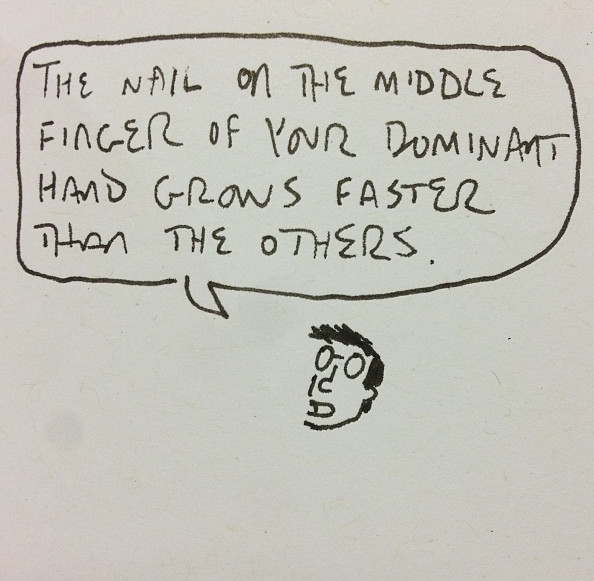 THE NAIL ON THE MIDDLE
FINGER OF YOUR DOMINANT
HAND GROWS FASTER
THAN THE OTHERS.